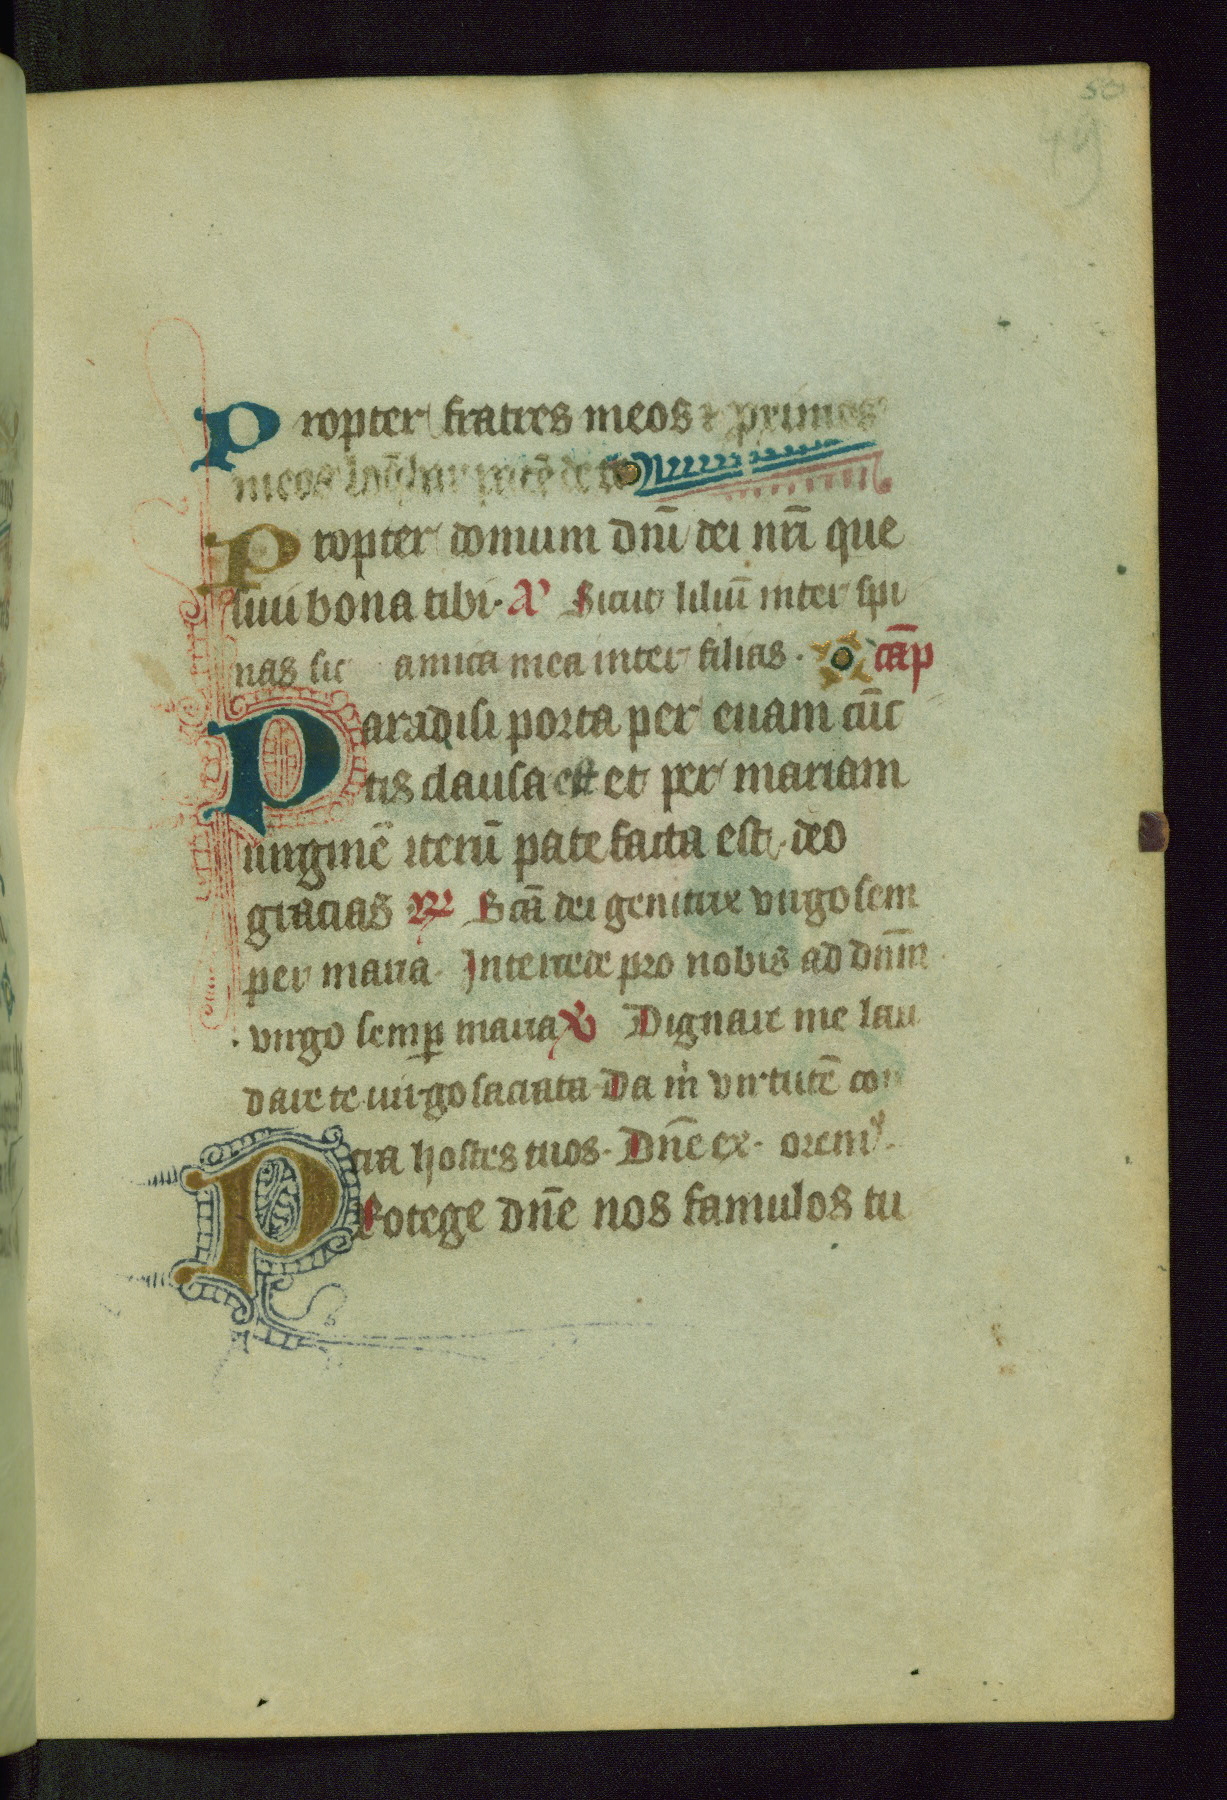 50
49
Propter fratres meos ⁊ ꝓximos
meos loq̄bar pacē de te
Propter domum dn̄i dei nr̄i que
siui bona tibi. A͞ Sicut liliū inter spi
nas sic amica mea inter filias. cap̄
Paradisi porta per euam cūc
tis clausa est et per mariam
uirginē iterū patefacta est. deo
gracias ℟ Scā dei genitrix virgo sem
per maria. Intercede pro nobis ad dn̄m
virgo semꝑ maria ℣ Dignare me lau
dare te uirgo sacrata Da m̍ virtutē con
tra hostes tuos. Dn̄e ex. oremꝰ.
Protege dn̄e nos famulos tu